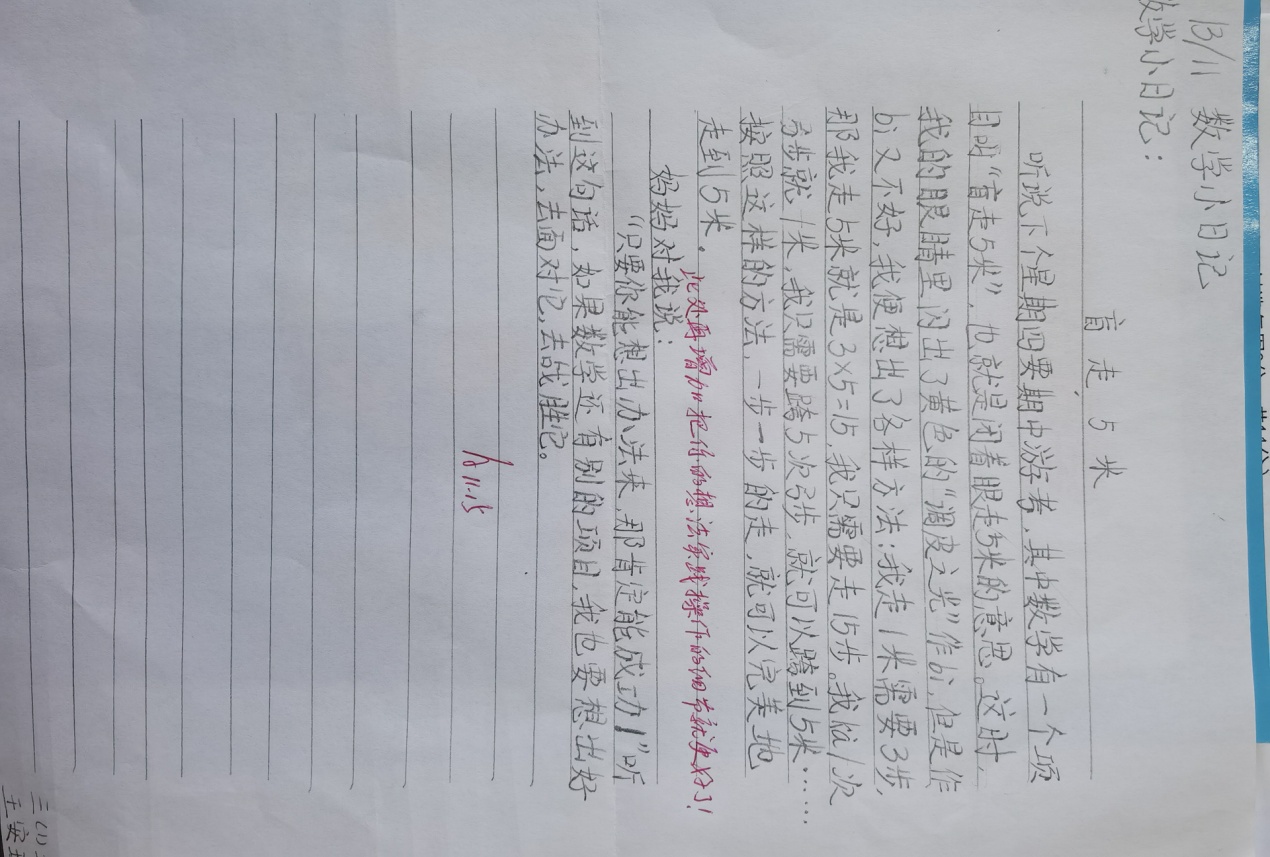 13/11 数学小日记
数学小日记：
盲走5米
听说下个星期四要期中游考，其中数学有一个项
目叫“盲走5米”，也就是闭着眼走5米的意思。这时，
我的眼睛里闪出了黄色的“调皮之光”作bì，但是作
bì又不好，我便想出了各样方法：我走1米需要3步，
那我走5米就是3×5=15，我只需要走15步。我kuà1次
3步就1米，我只需要跨5次3步，就可以跨到5米……
按照这样的方法，一步一步的走，就可以完美地
走到5米。
此处再增加把你的想法实践操作的细节就更好了！
妈妈对我说：
“只要你能想出办法来，那肯定能成功！”听
到这句话，如果数学还有别的项目，我也要想出好
办法，去面对它，去战胜它。
11.15
三(1)
王